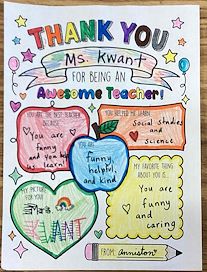 THANK YOU
Ms. Kwant
FOR BEING AN
Awesome Teacher!
YOU ARE THE BEST TEACHER
BECAUSE...
You are
funny
and you help
us learn
YOU HELPED ME LEARN...
Social studies
and
science
YOU ARE
funny,
helpful,
and kind
MY FAVORITE THING
ABOUT YOU IS...
You are
funny
and
caring
MY PICTURE FOR
YOU
KWANT
FROM: Anniston